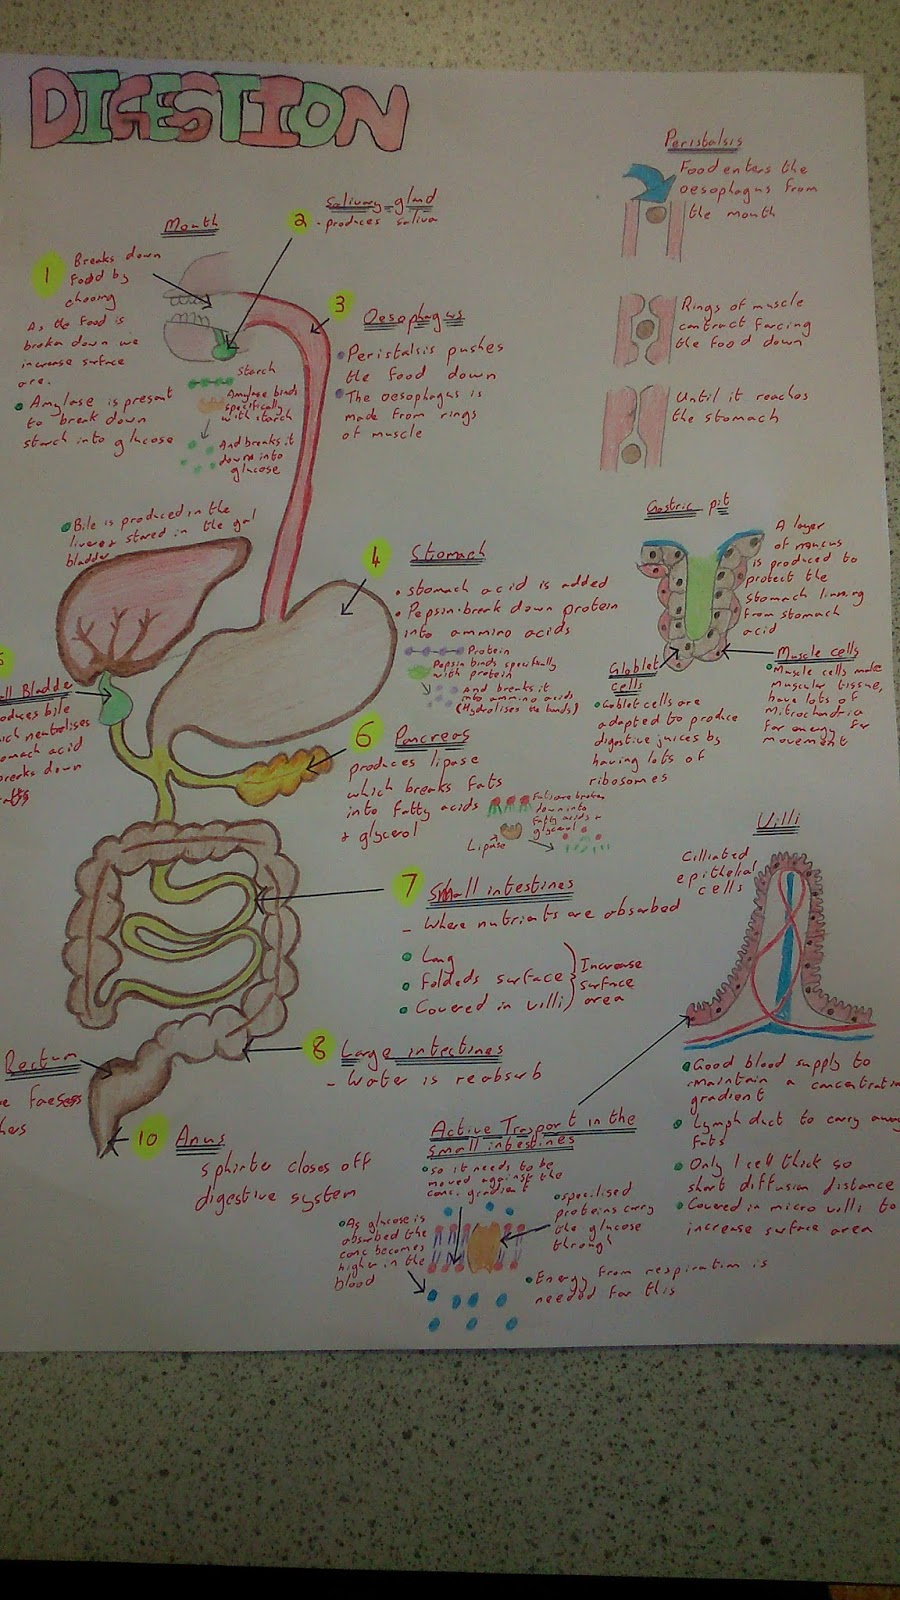 DIGESTION
Mouth
1
Breaks down
food by
chooing
As the food is
broken down we
increase surface
are.
Amylase is present
to break down
starch into glucose
2
Salivary gland
- produces saliva
starch
Amylase binds
specifically
with starch
And breaks it
down into
glucose
3
Oesophagus
Peristalsis pushes
the food down
The oesophagus is
made from rings
of muscle
Peristalsis
Food enters the
oesophagus from
the mouth
Rings of muscle
contract forcing
the food down
Until it reaches
the stomach
Bile is produced in the
liver + stored in the gal
bladder
4
Stomach
stomach acid is added
Pepsin-break down protein
into ammino acids
Protein
Pepsin binds specifically
with protein
And breaks it
into ammino acids
(Hydrolises the bonds)
Gastric pit
A layer
of mucus
is produced to
protect the
stomach linning
from stomach
acid
Globlet
cells
Goblet cells are
adapted to produce
digestive juices by
having lots of
ribosomes
Muscle cells
Muscle cells make
muscular tissue,
have lots of
mitochondria
for energy for
movement
5
all Bladder
oduces bile
ich neutralises
omach acid
reaks down
6
Pancreas
produces lipase
which breaks fats
into fatty acids
+ glycerol
Fats are broken
down into
fatty acids +
glycerol
Lipase
7
Small intestines
- Where nutrients are absorbed
Long
Foldeds surface
Covered in villi
Increase
surface
area
8
Large intestines
- Water is reabsorb
Rectum
e faeses
hers
10
Anus
sphinter closes off
digestive system
Villi
Cilliated
epithelial
cells
Good blood supply to
maintain a concentratio
gradient
Lymph duct to carry away
fats
Only 1 cell thick so
short diffusion distance
Covered in micro villi to
increase surface area
Active Trasport in the
small intestines
so it needs to be
moved against the
conc. gradient
As glucose is
absorbed the
conc becomes
higher in the
blood
specilised
proteins carry
the glucose
through
Energy from respiration is
needed for this